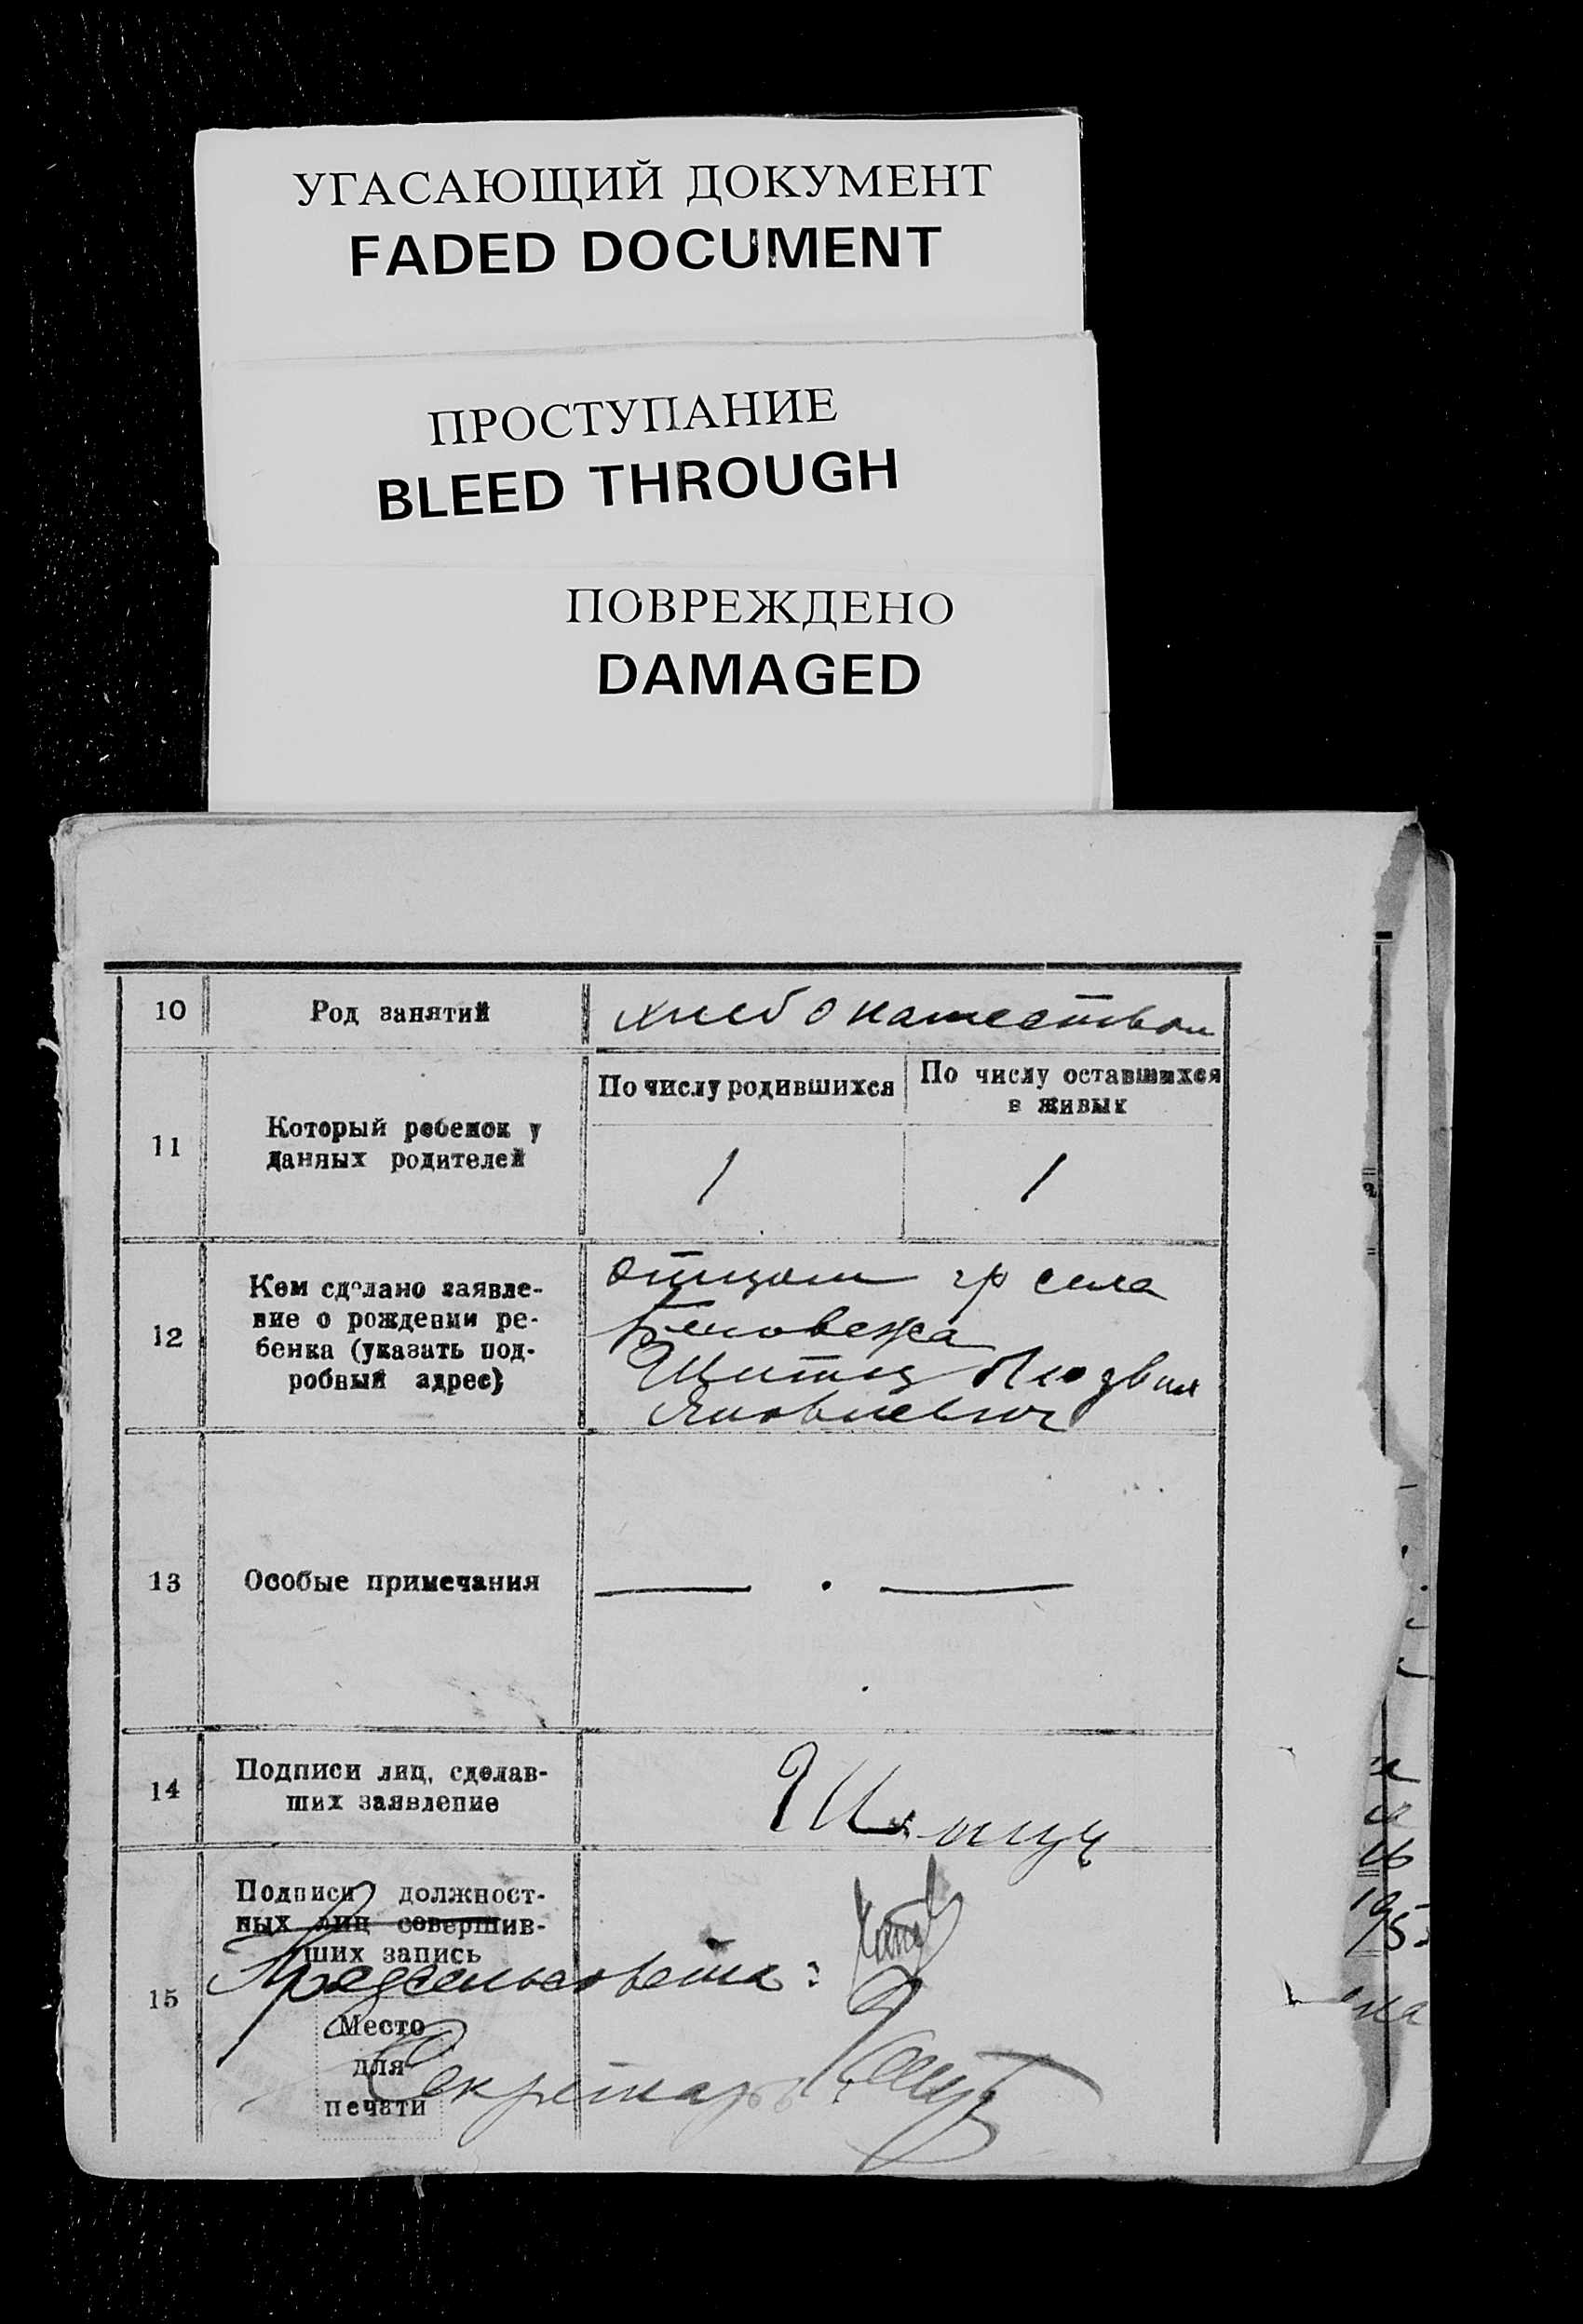 УГАСАЮЩИЙ ДОКУМЕНТ
FADED DOCUMENT
ПРОСТУПАНИЕ
BLEED THROUGH
ПОВРЕЖДЕНО
DAMAGED
10 Род занятий
11 Который ребенок у
данных родителей
По числу родившихся
По числу оставшихся
в живых
1 1
12 Кем сделано заявле-
ние о рождении ре-
бенка (указать под-
робный адрес)
отцом гр села
Беловежа
Шитц Людвиг
Яковлевич
13 Особые примечания
14 Подписи лиц, сделав-
ших заявление
15 Подписи должност-
ных лиц совершив-
ших запись
Предсельсовета:
Место
для
печати
Секретарь